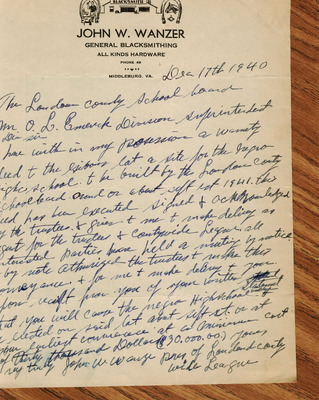 BLACKSMITH
JOHN W. WANZER
GENERAL BLACKSMITHING
ALL KINDS HARDWARE
PHONE 48
MIDDLEBURG, VA.
Dec 17th 1940
The Loudoun County School board
Mr O. L. Emerick Division Superintendent
Dear Sir
I have with in my possession a waranty
deed to the exibous lot a site for the negro
high school. to be built by the Loudoun County
School board on or about Sept 1st 1941. the
deed has been executed signed & acknowledged
by the trustees & given to me to make delivery as
agent for the trustees & countywide League all
interested parties have held a meeting by notice
& by vote authorised the trustees to make this
conveyance & for me to make delivery to you
upon receipt from you of your written statement
that you will cause the negro Highschool to
be erected on said lot about Sept 1st. or at
your earliest convenience at a minimum cost
of thirty thousand Dollars ($30.000.00) yours
very truly John W. Wanzer Pres of Loudoun County
wide League